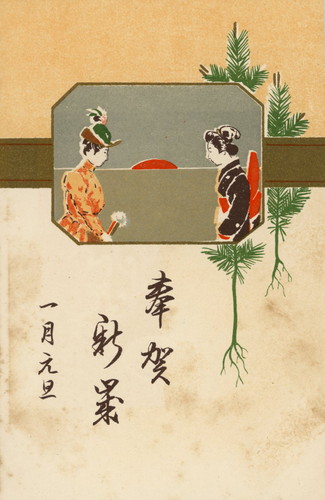 奉賀
新歳
一月元旦